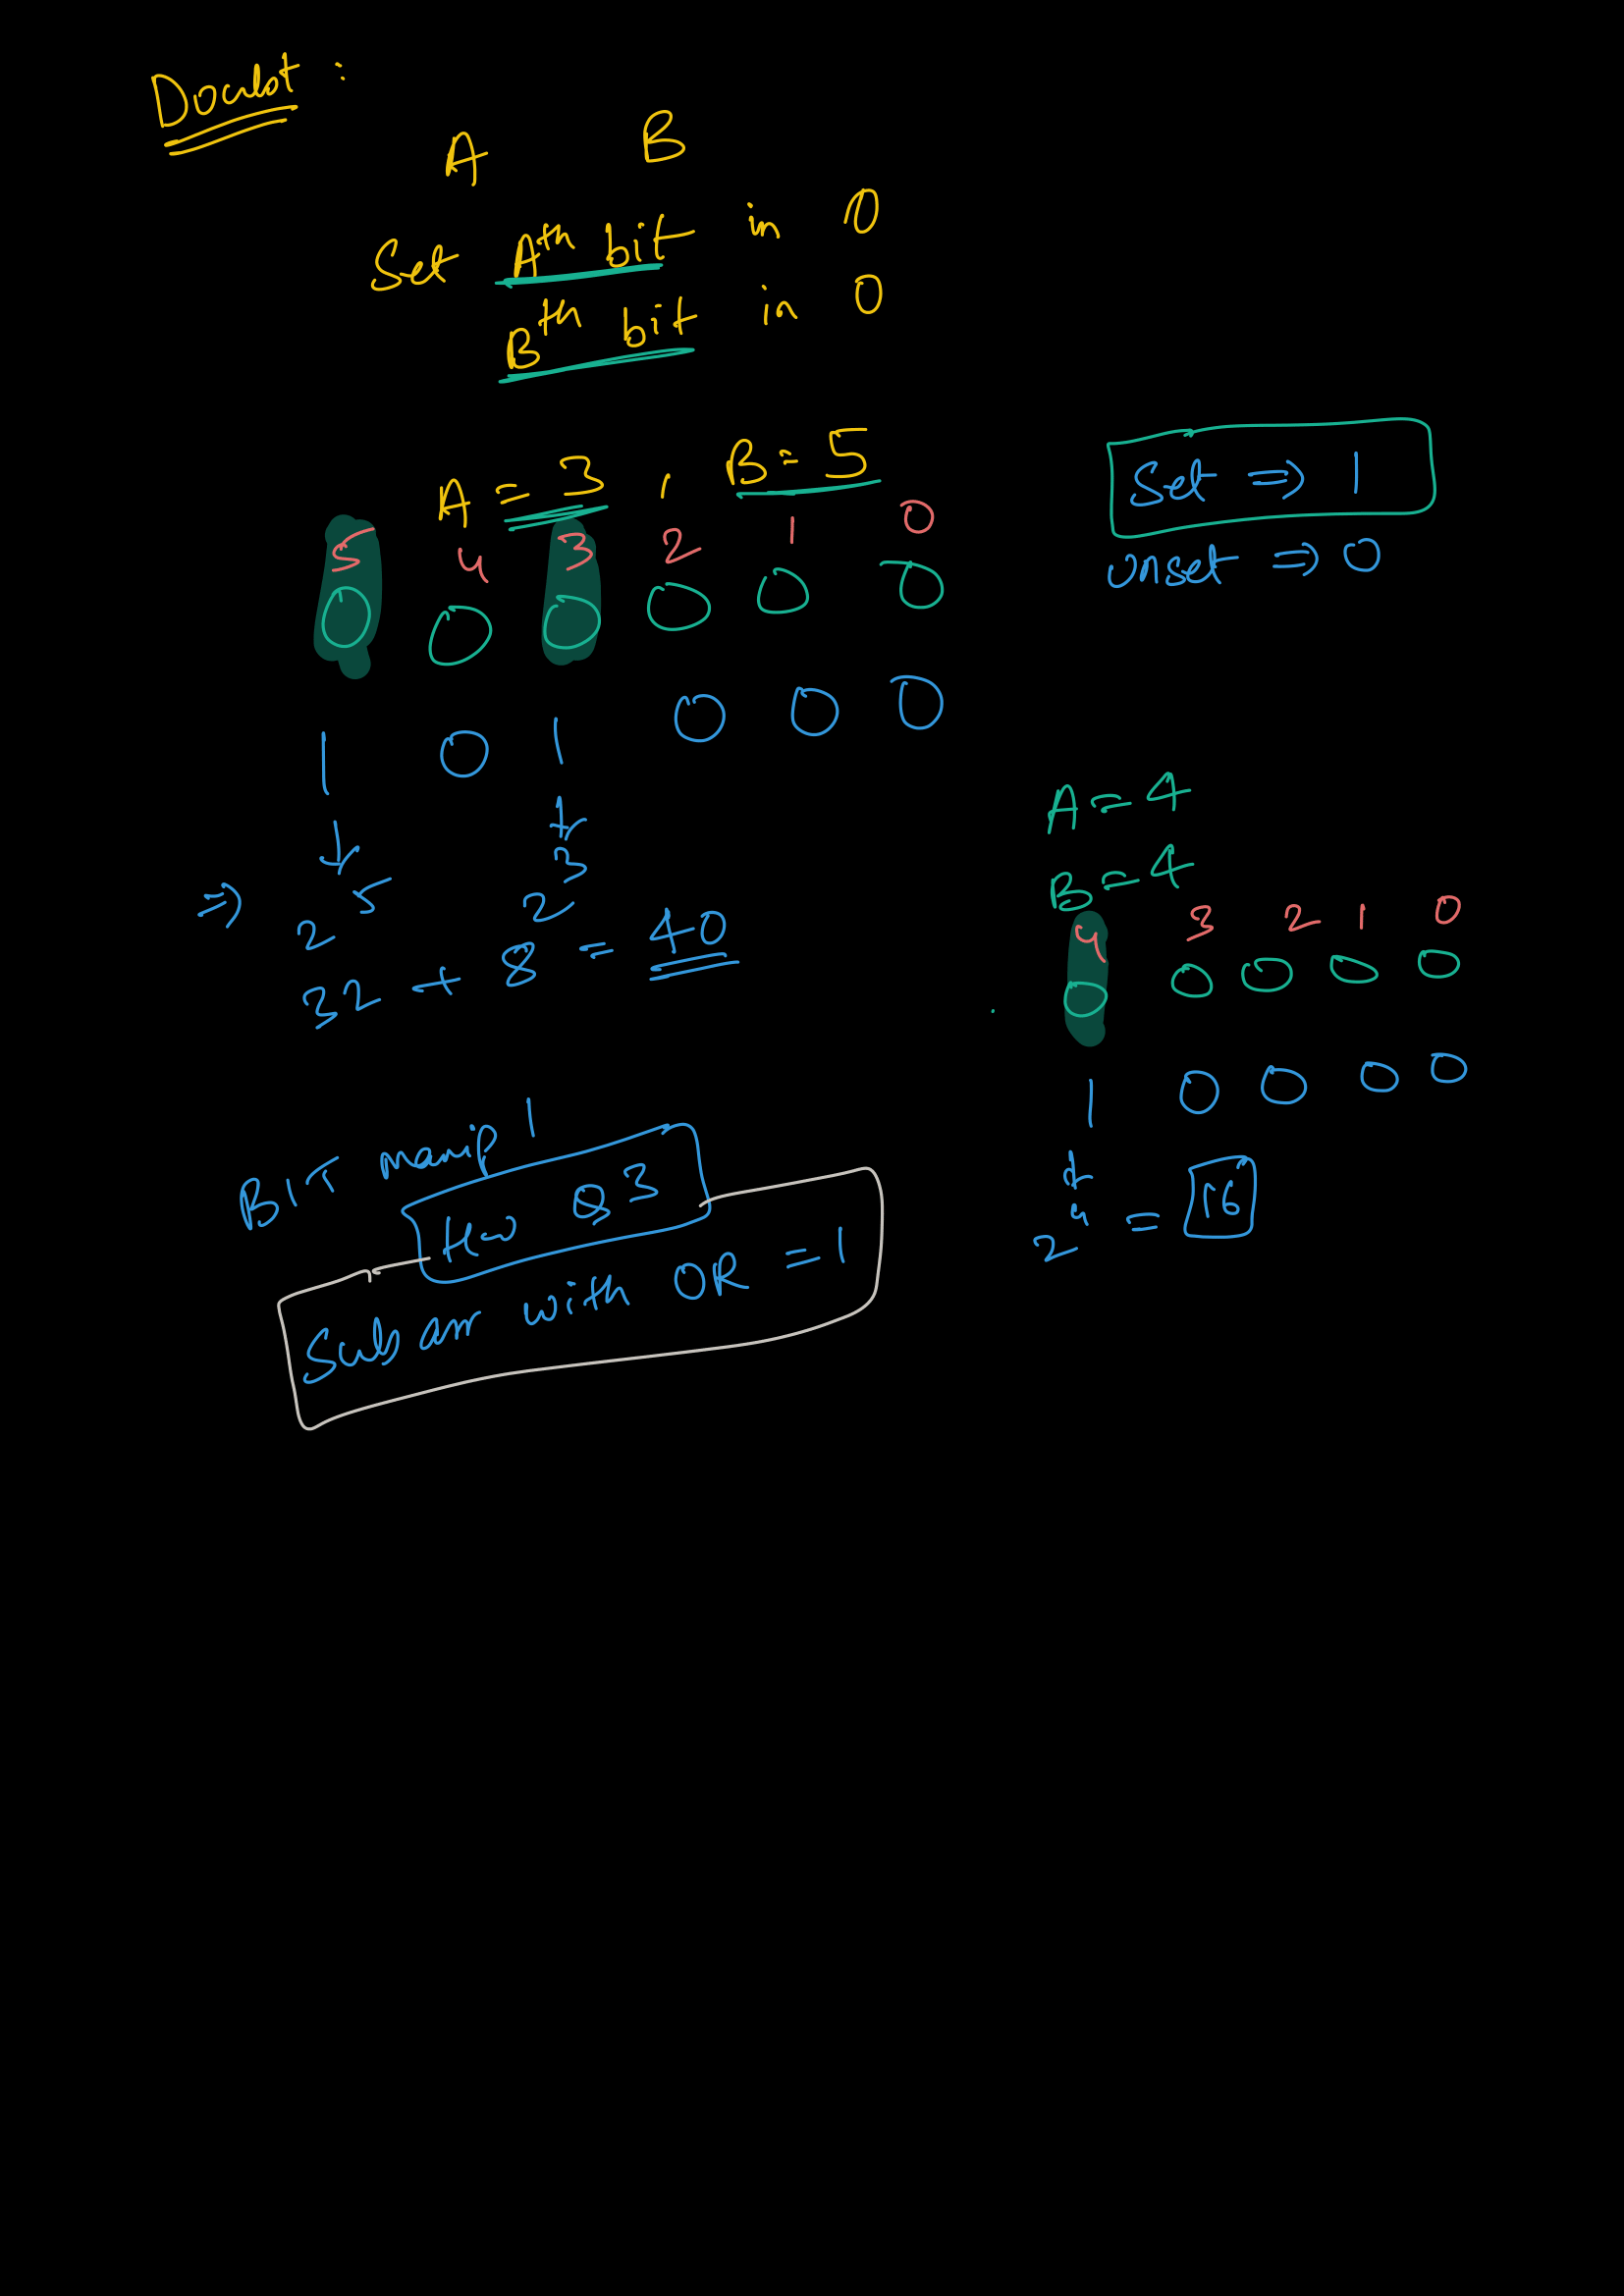 Doubt :
A B
Set Ath bit in 0
Bth bit in 0
A = 3 , B = 5
5 4 3 2 1 0
0 0 0 0 0 0
1 0 1 0 0 0
⇒ 2^5 + 2^3
32 + 8 = 40
Set ⇒ 1
unset ⇒ 0
A = 4
B = 4
4 3 2 1 0
0 0 0 0 0
1 0 0 0 0
2^4 = 16
BIT manip 1
HW Q3
Subarr with OR = 1